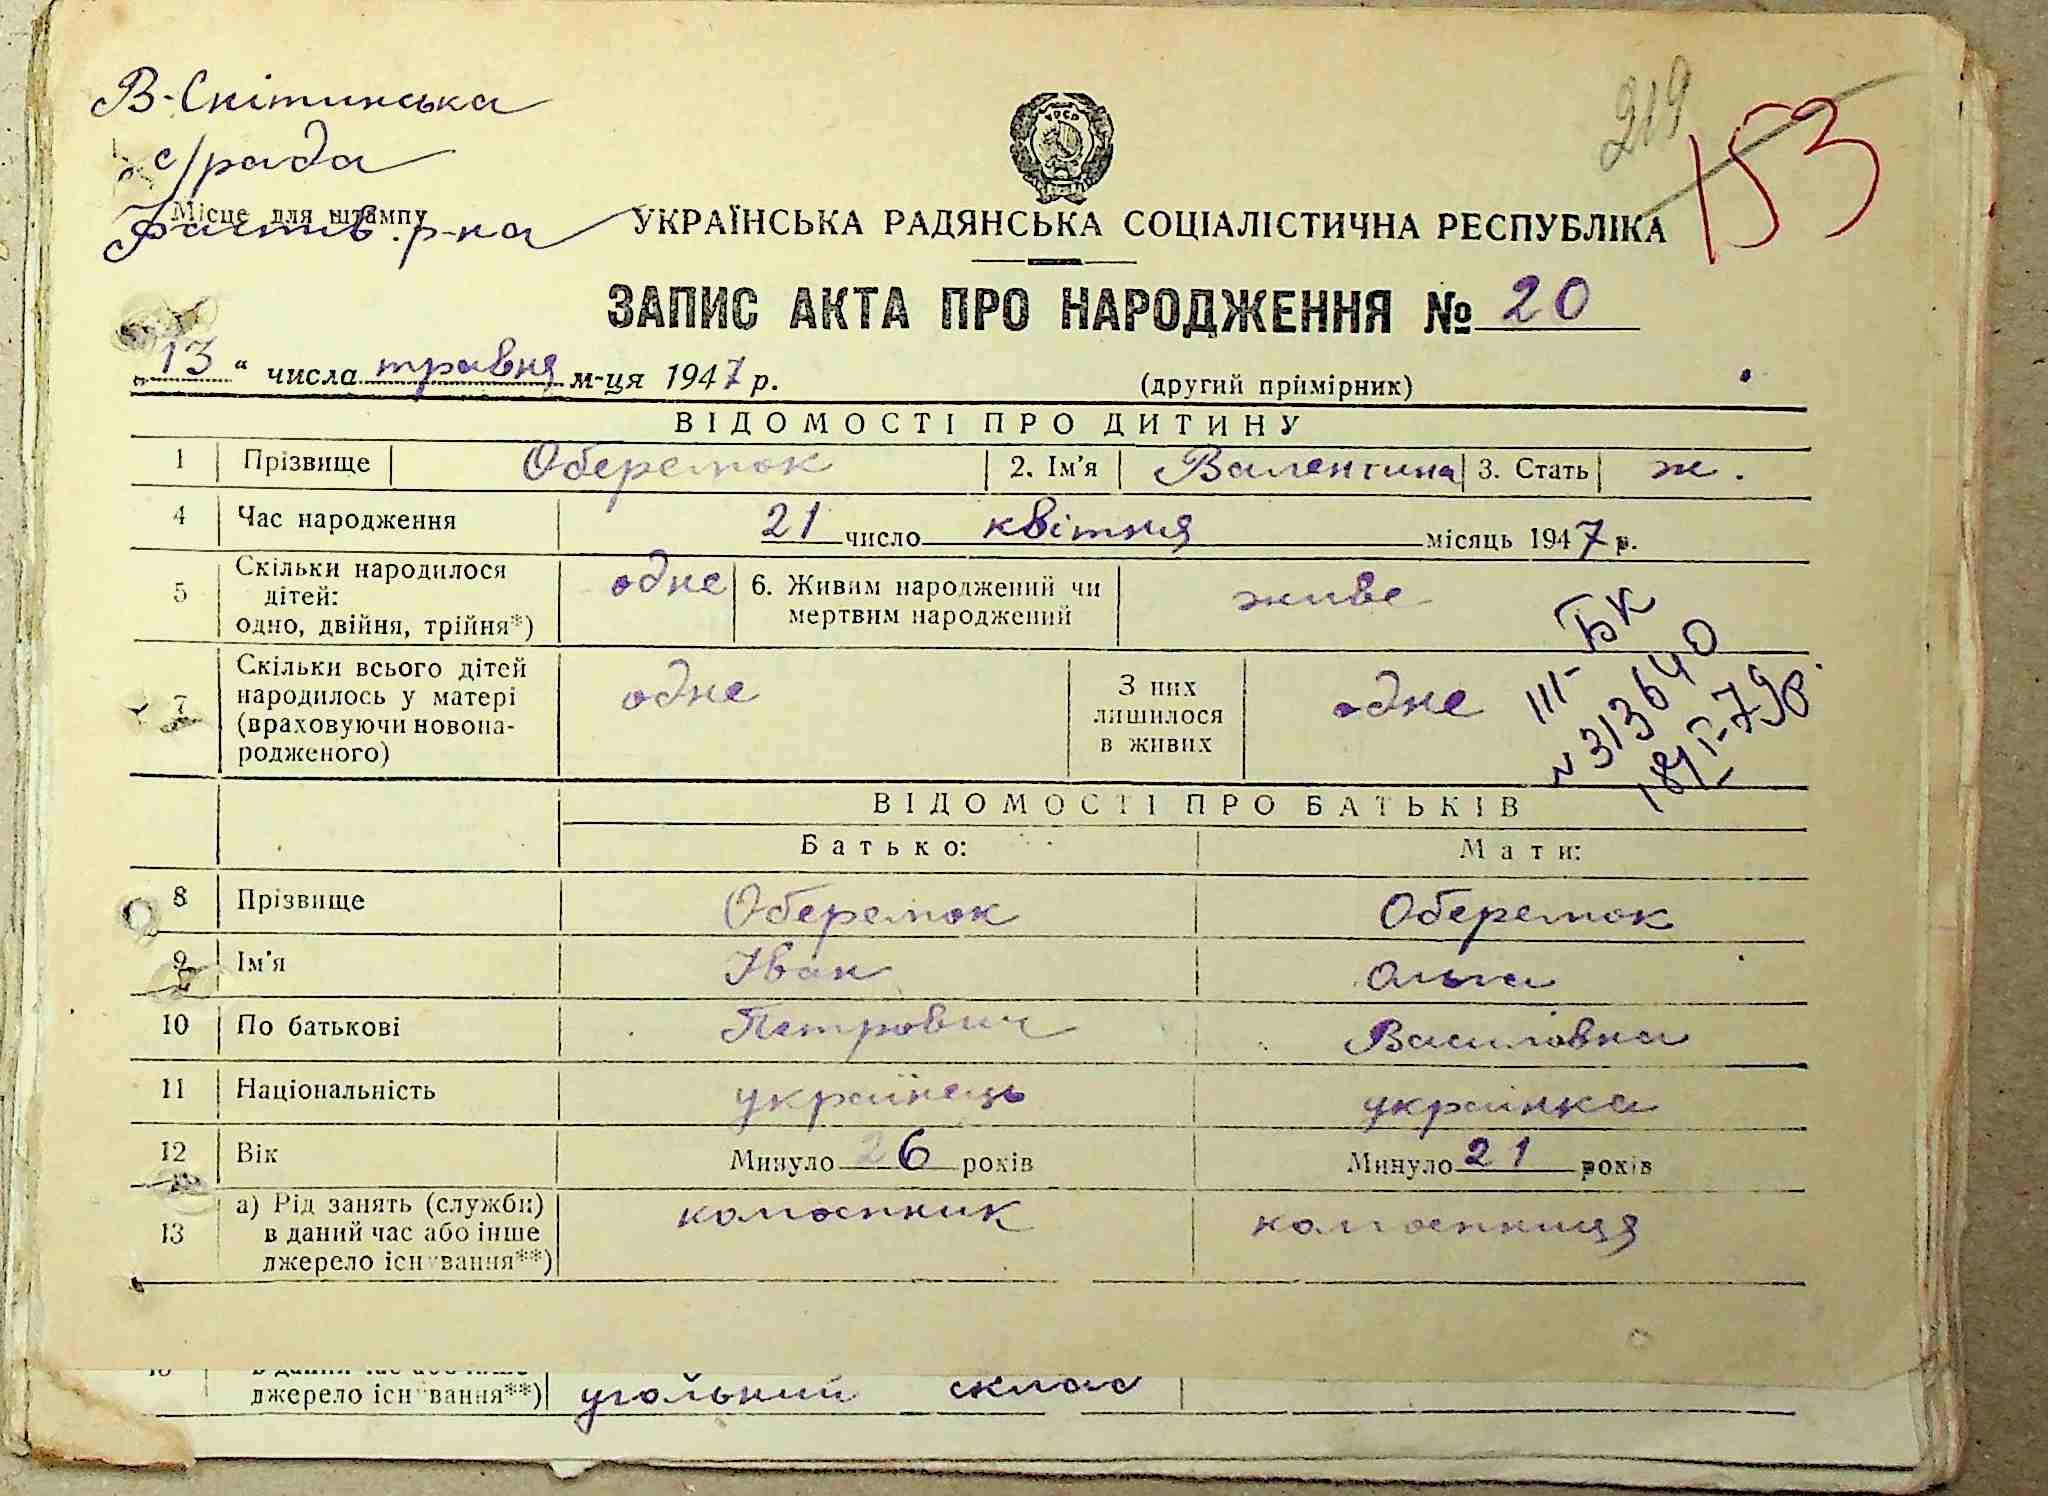 В-Снітинська
с/рада
Місце для штампу
Фастів. р-на
219
153
УРСР
УКРАЇНСЬКА РАДЯНСЬКА СОЦІАЛІСТИЧНА РЕСПУБЛІКА
ЗАПИС АКТА ПРО НАРОДЖЕННЯ № 20
„13“ числа травня м-ця 1947 р.
(другий примірник)
ВІДОМОСТІ ПРО ДИТИНУ
1 Прізвище Оберемок 2. Ім'я Валентина 3. Стать ж.
4 Час народження 21 число квітня місяць 1947 р.
5 Скільки народилося дітей: одно, двійня, трійня*) одне 6. Живим народжений чи мертвим народжений живе
7 Скільки всього дітей народилось у матері (враховуючи новонародженого) одне З них лишилося в живих одне
III-БК
№ 313640
ВІДОМОСТІ ПРО БАТЬКІВ
Батько: Мати:
8 Прізвище Оберемок Оберемок
9 Ім'я Іван Ольга
10 По батькові Петрович Василівна
11 Національність українець українка
12 Вік Минуло 26 років Минуло 21 років
13 а) Рід занять (служби) в даний час або інше джерело існування**) колгоспник колгоспниця
джерело існування**) угольний склад